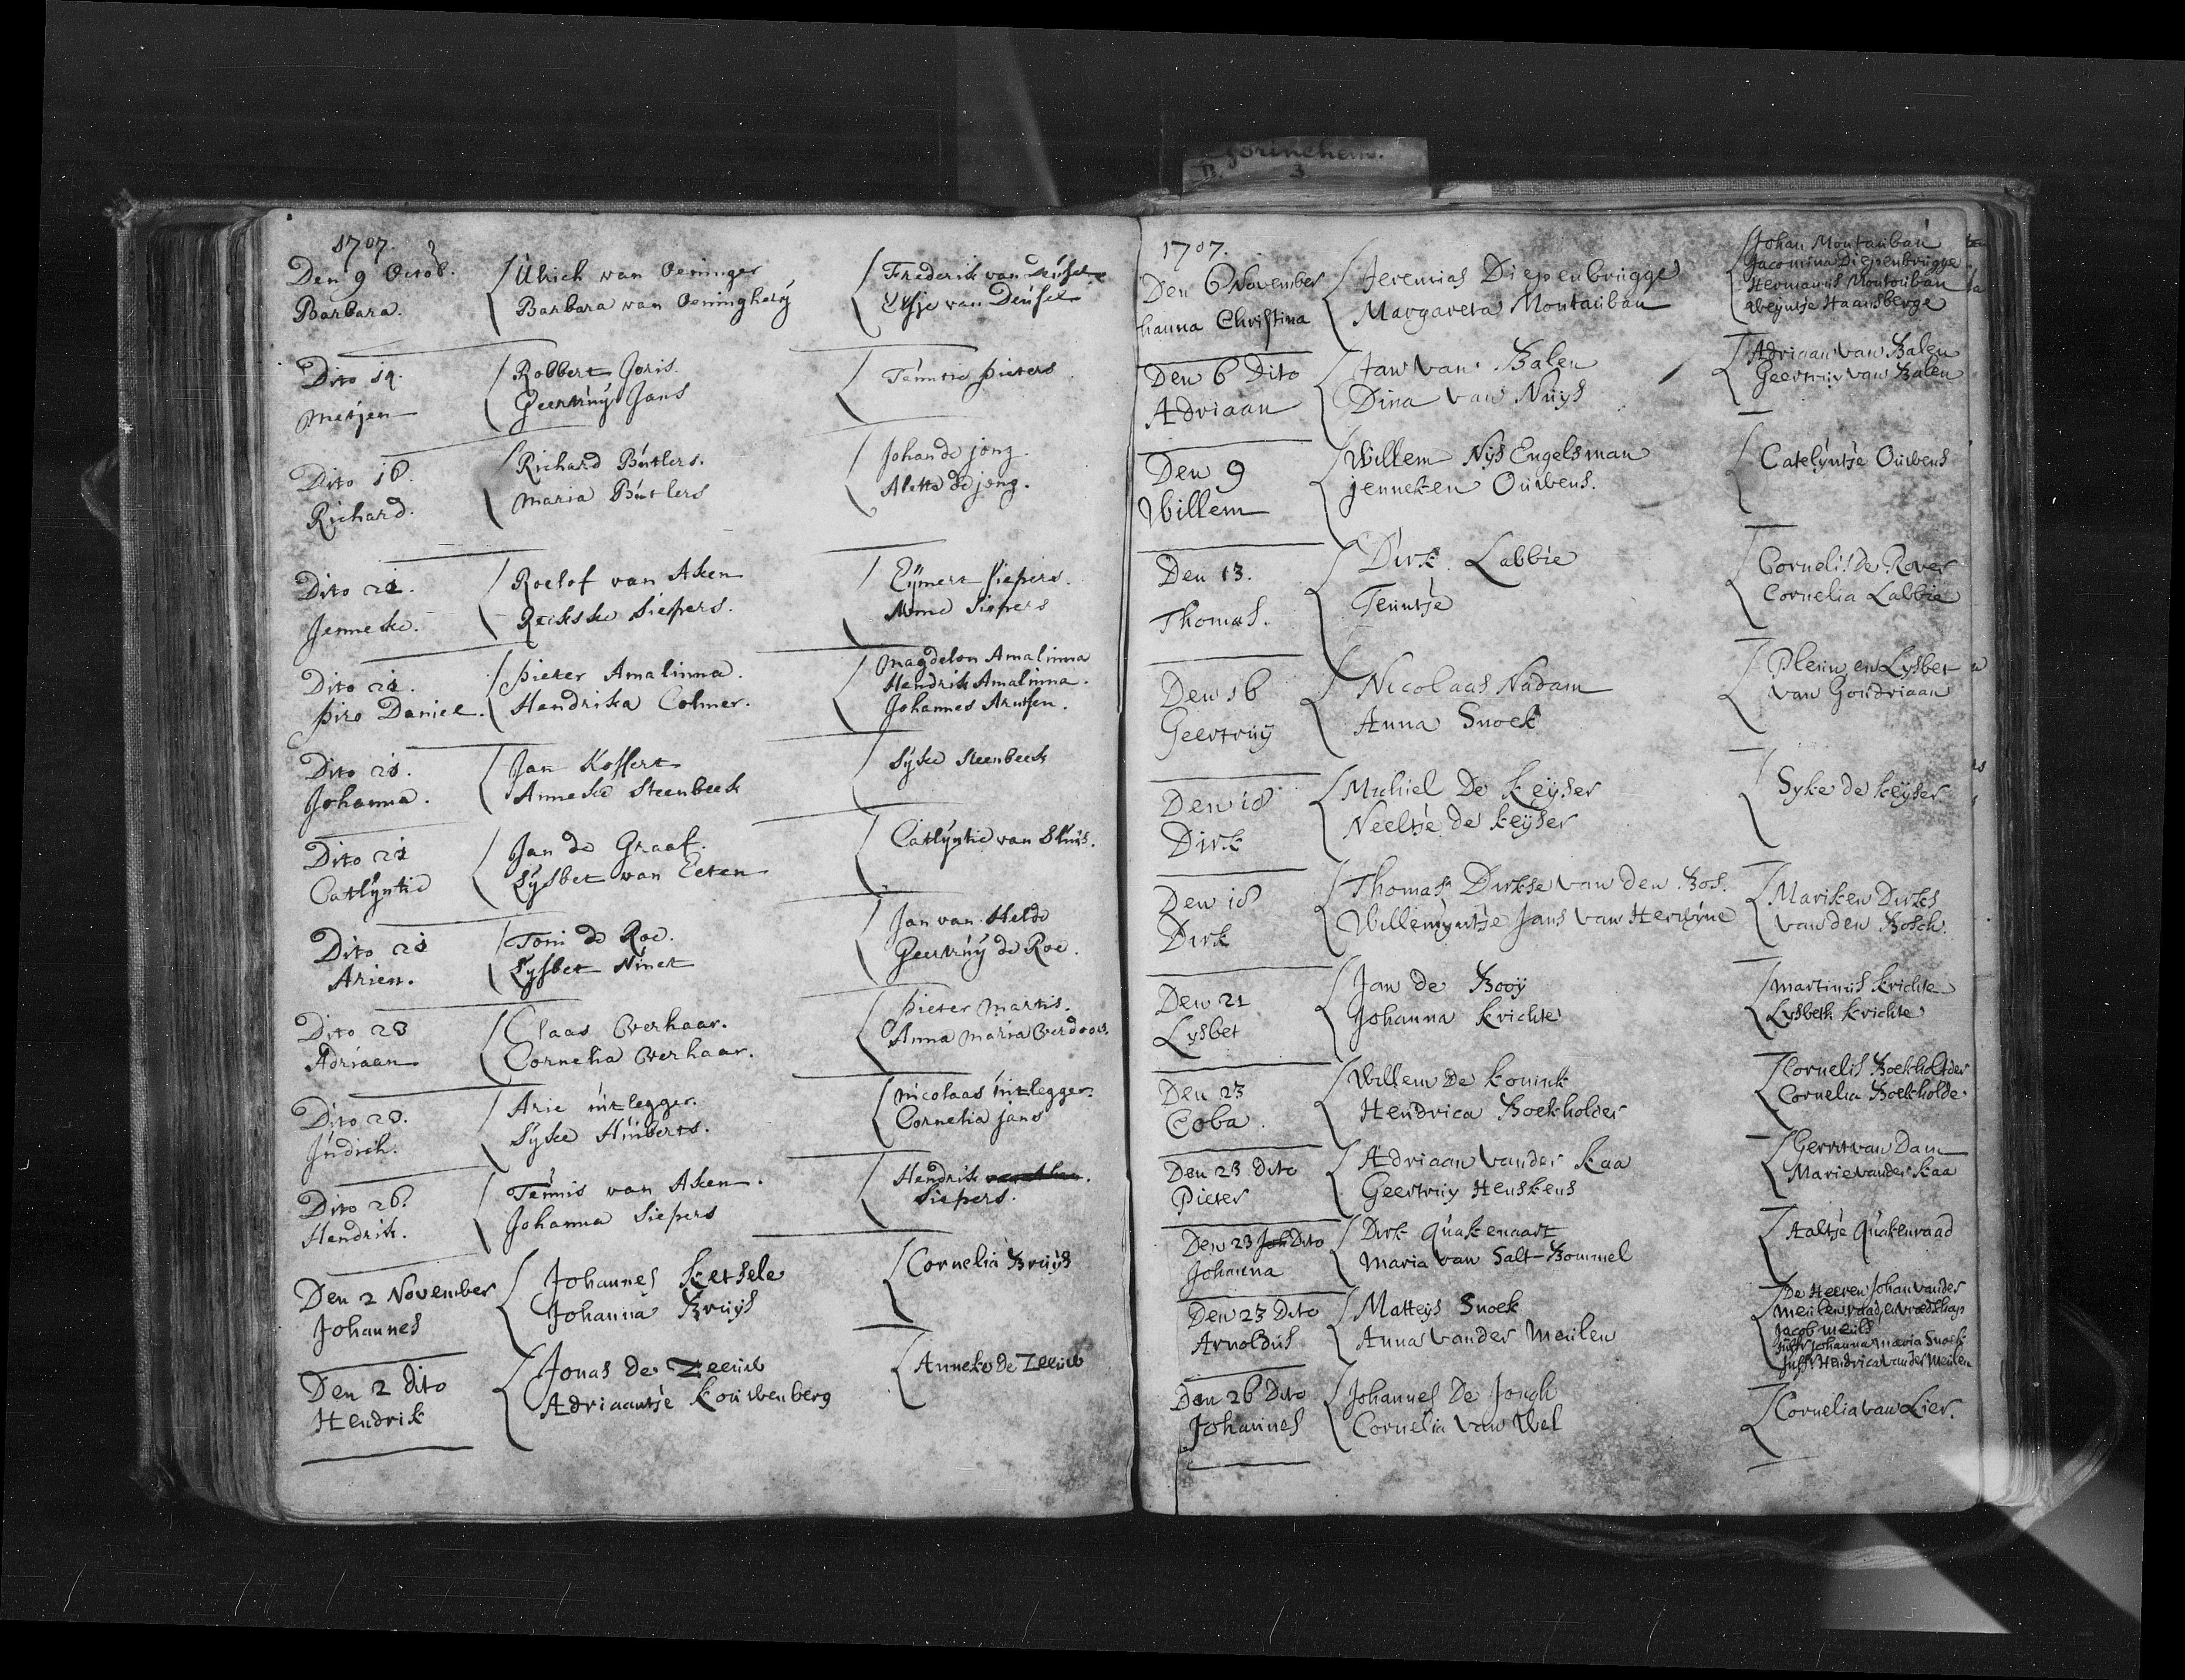 Gorinchem.
3
1707.
Den 9 Octob.
Barbara.
Ulrich van Oeninger
Barbara van Oeninghery
Frederik van Deusel
Elsje van Deusel
Dito 14.
Metjen
Robbert Joris.
Geertruy Jans
Teuntie Pieters
Dito 16.
Richard.
Richard Butlers.
Maria Butlers
Johan de jong
Aletta de jong.
Dito 21.
Jenneke.
Roelof van Aken
Reikske Siepers.
Eymert Siepers.
Anna Siepers
Dito 21.
Piro Daniel.
Pieter Amalinna.
Handrika Colmer.
Magdelon Amalinna
Hendrik Amalinna.
Johannes Arntsen.
Dito 21.
Johanna.
Jan Koffert
Anneke Steenbeek
Syke Steenbeek
Dito 21
Catlyntie
Jan de Graaf.
Lysbet van Eeten
Catlyntie van Sluis.
Dito 21
Arien.
Toni de Roe.
Lysbet Ninet
Jan van Helde
Geertruy de Roe.
Dito 23
Adriaan
Claas Overhaar.
Cornelia Overhaar.
Pieter Martis.
Anna Maria Overdoor
Dito 23.
Judich.
Arie uitlegger.
Syke Huiberts.
Nicolaas uitlegger.
Cornelia jans
Dito 26.
Hendrik.
Teunis van Aken.
Johanna Siepers
Hendrik van Aken.
Siepers.
Den 2 November
Johannes
Johannes Ketsele
Johanna Bruys
Cornelia Bruys
Den 2 dito
Hendrik
Jonas de Zeeuw
Adriaantje Kouwenberg
Anneke de Zeeuw
1707.
Den 6 November
hanna Christina
Jeremias Diepenbrugge
Margareta Montauban
Johan Montauban
Jacomina Diepenbrugge
Hermanus Montouban
Weyntje Haansberge
Den 6 Dito
Adriaan
Jan van Balen
Dina van Nuys
Adriaan van Balen
Geertruy van Balen
Den 9
Willem
Willem Nys Engelsman
jenneken Ouwens.
Catelyntje Ouwens
Den 13.
Thomas.
Dirk Labbie
Teuntje
Cornelis de Rover
Cornelia Labbie
Den 16
Geertruy
Nicolaas Nadam
Anna Snoek
Pleun en Lysbet
van Goudriaan
Den 18
Dirk
Michiel De Keyser
Neeltje de Keyser
Syke de Keyser
Den 18
Dirk
Thomas Dirkse van den Bos.
Willemyntje Jans van Herwyne
Mariken Dirks
van den Bosch.
Den 21
Lysbet
Jan de Booy
Johanna Krichte
Martinus Krichte
Lysbeth Krichte
Den 23
Coba.
Willem De Konink
Hendrica Boekholder
Cornelis Boekholder
Cornelia Boekholde
Den 23 Dito
Pieter
Adriaan vander Kaa
Geertruy Henskens
Gerrit van Dam
Marie vander Kaa
Den 23 Joh Dito
Johanna
Dirk Quakenaart
Maria van Salt-Bommel
Aaltje Quakenraad
Den 23 Dito
Arnoldus
Matteys Snoek
Anna vander Meulen
De Heeren Johan vander
Meulen raad, en vroedschap
Jacob Meuls
Juffr Johanna Maria Snoek
Juffr Hendrica vander Meulen
Den 26 Dito
Johannes
Johannes De Jongh
Cornelia van Wel
Cornelia van Lier.